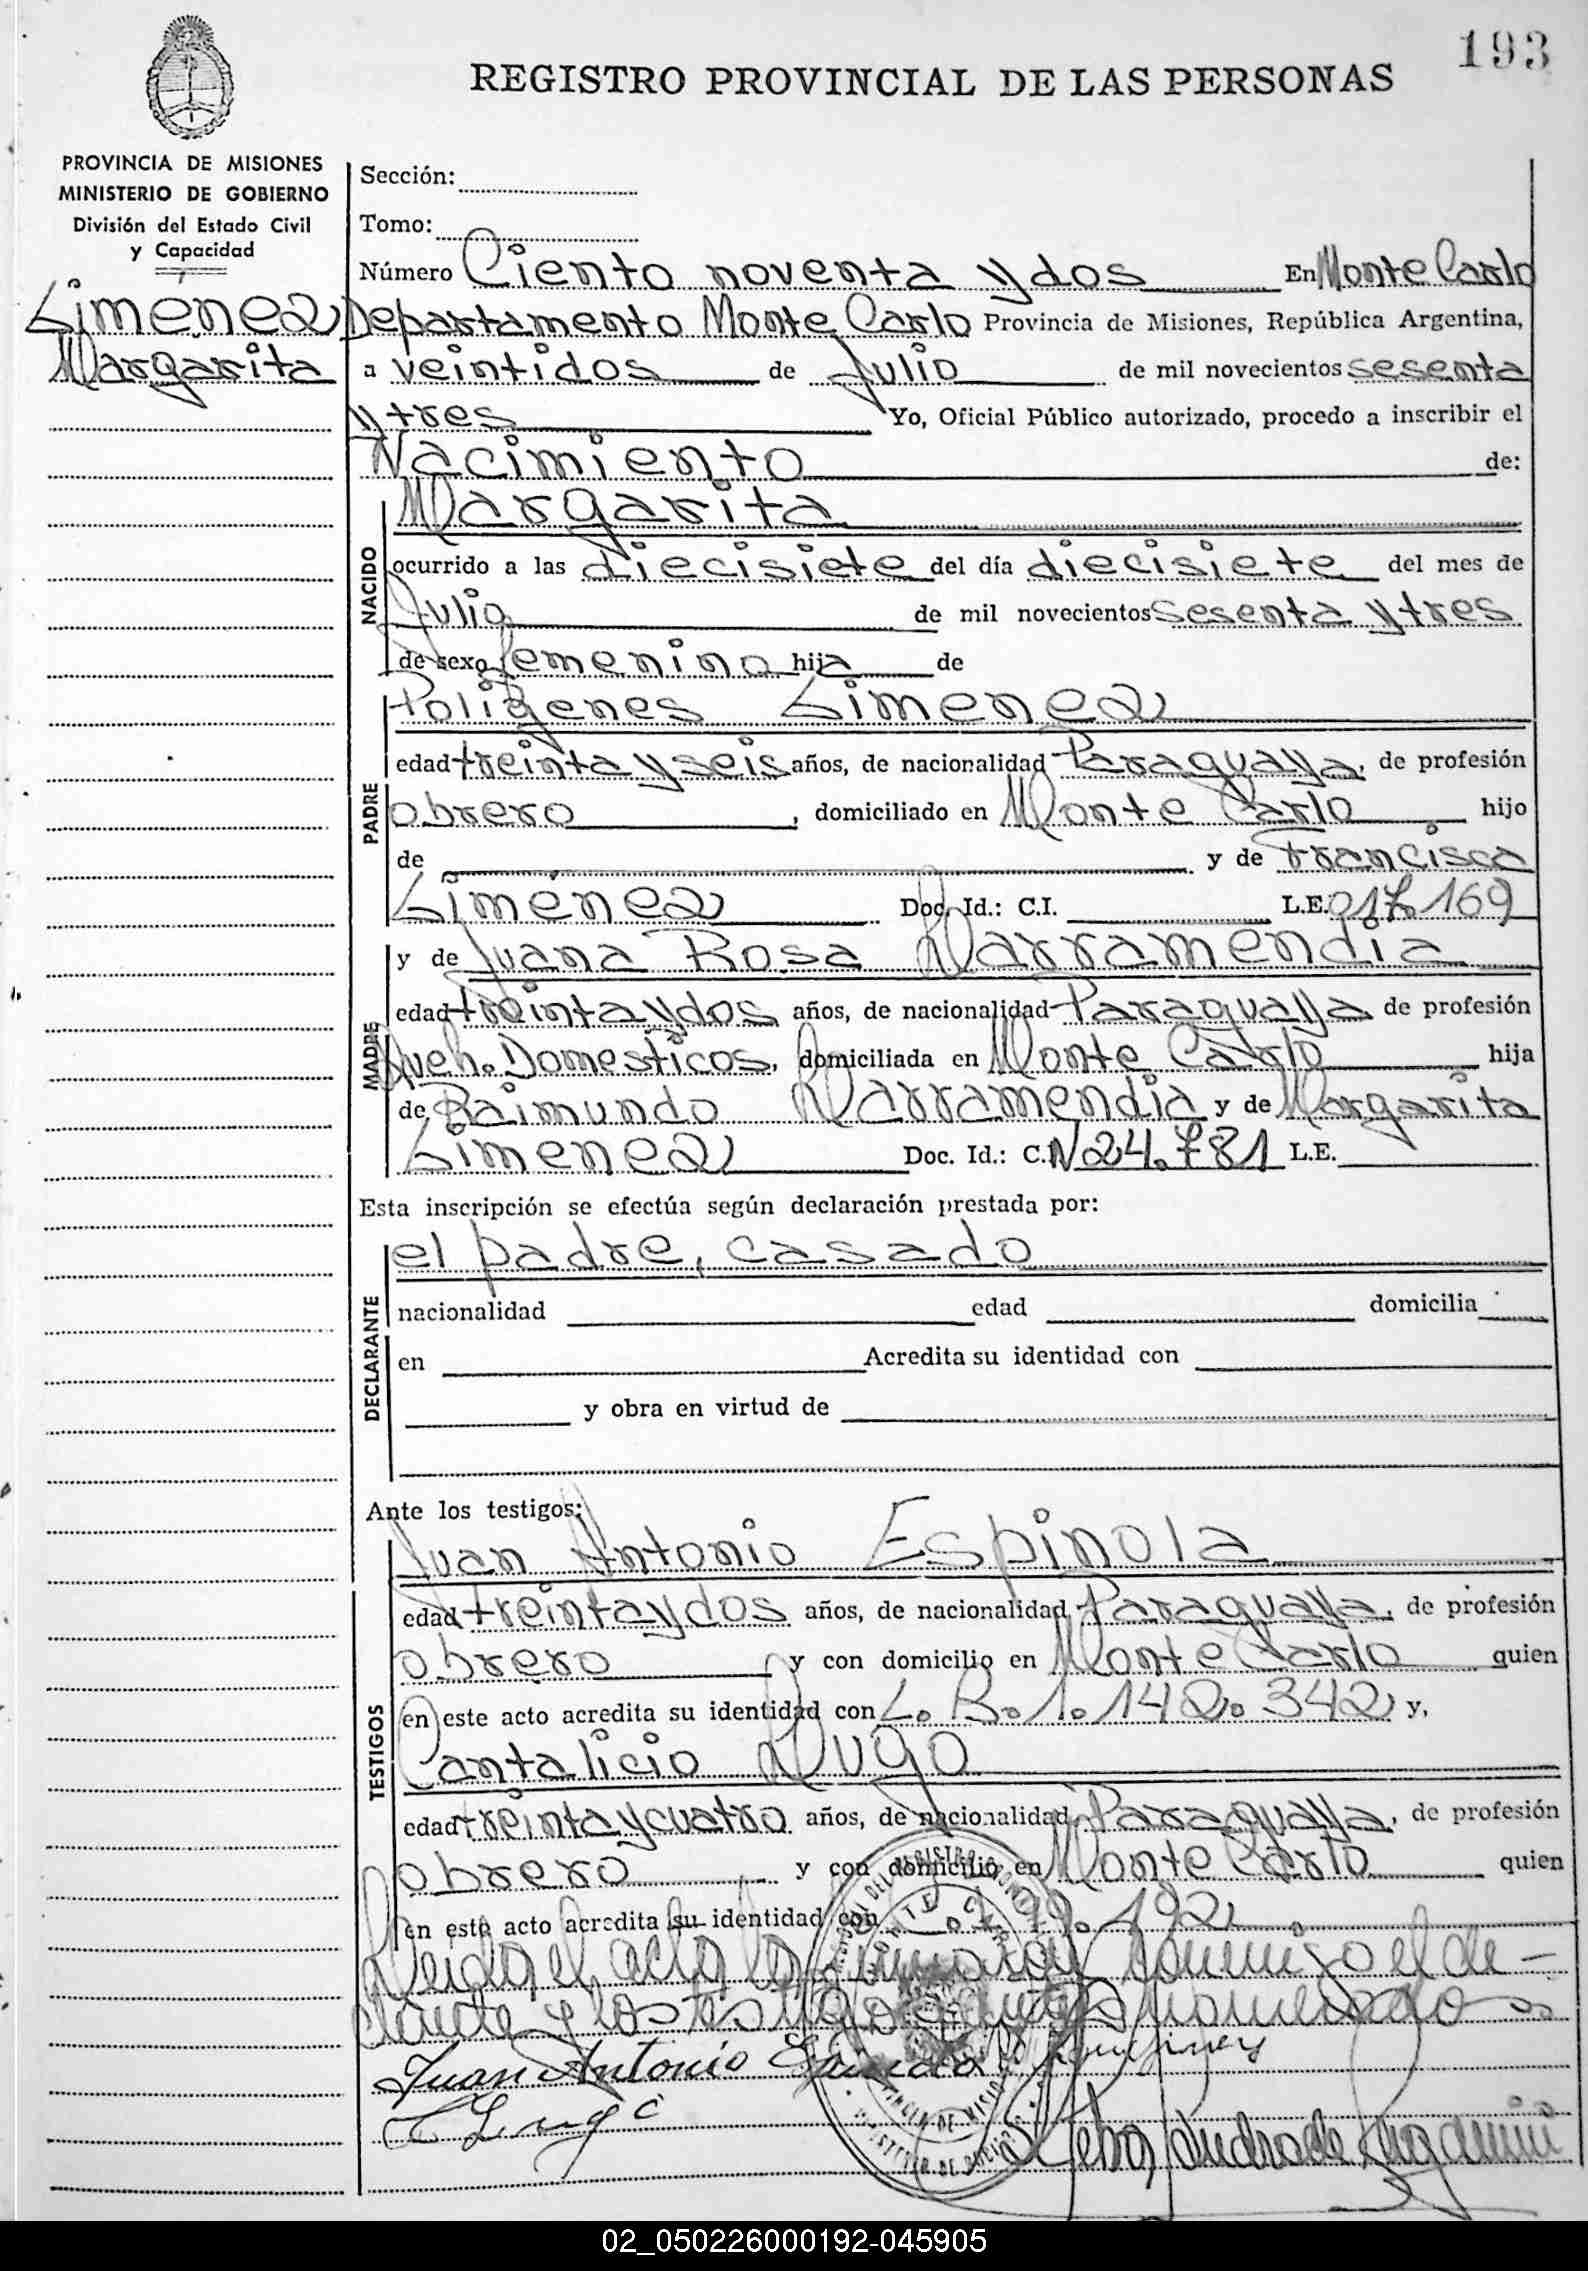 193
REGISTRO PROVINCIAL DE LAS PERSONAS
PROVINCIA DE MISIONES
MINISTERIO DE GOBIERNO
División del Estado Civil
y Capacidad
Gimenez
Margarita
Sección:
Tomo:
Número Ciento noventa y dos En Monte Carlo
Departamento Monte Carlo Provincia de Misiones, República Argentina,
a veintidos de Julio de mil novecientos sesenta
y tres Yo, Oficial Público autorizado, procedo a inscribir el
Nacimiento de:
Margarita
NACIDO
ocurrido a las diecisiete del día diecisiete del mes de
Julio de mil novecientos sesenta y tres
de sexo femenino hija de
Gimenez
PADRE
edad treinta y seis años, de nacionalidad Paraguaya, de profesión
obrero, domiciliado en Monte Carlo hijo
de y de Francisca
Giménez Doc. Id.: C.I. L.E. 017.169
y de Juana Rosa Larramendia
MADRE
edad treinta y dos años, de nacionalidad Paraguaya de profesión
Queh. Domesticos, domiciliada en Monte Carlo hija
de Raimundo Larramendia y de Margarita
Gimenez Doc. Id.: C. N 24.781 L.E.
Esta inscripción se efectúa según declaración prestada por:
el padre, casado
DECLARANTE
nacionalidad edad domicilia
en Acredita su identidad con
y obra en virtud de
Ante los testigos:
Juan Antonio Espinola
TESTIGOS
edad treinta y dos años, de nacionalidad Paraguaya, de profesión
obrero y con domicilio en Monte Carlo quien
en este acto acredita su identidad con L. B. 1.142.342 y,
Cantalicio Lugo
edad treinta y cuatro años, de nacionalidad Paraguaya, de profesión
obrero y con domicilio en Monte Carlo quien
en este acto acredita su identidad con 99.192
Leida el acta la conmigo el de-
clarante y los testigos
Juan Antonio Espinola
C Lugo
02_050226000192-045905